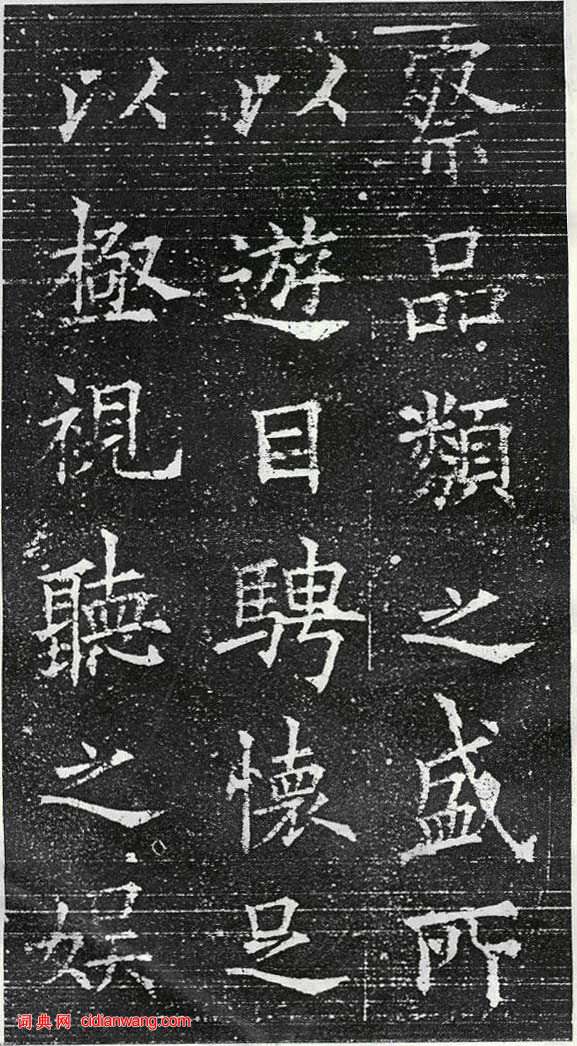 察品類之盛所
以遊目騁懷足
以極視聽之娱
词典网 cidianwang.com